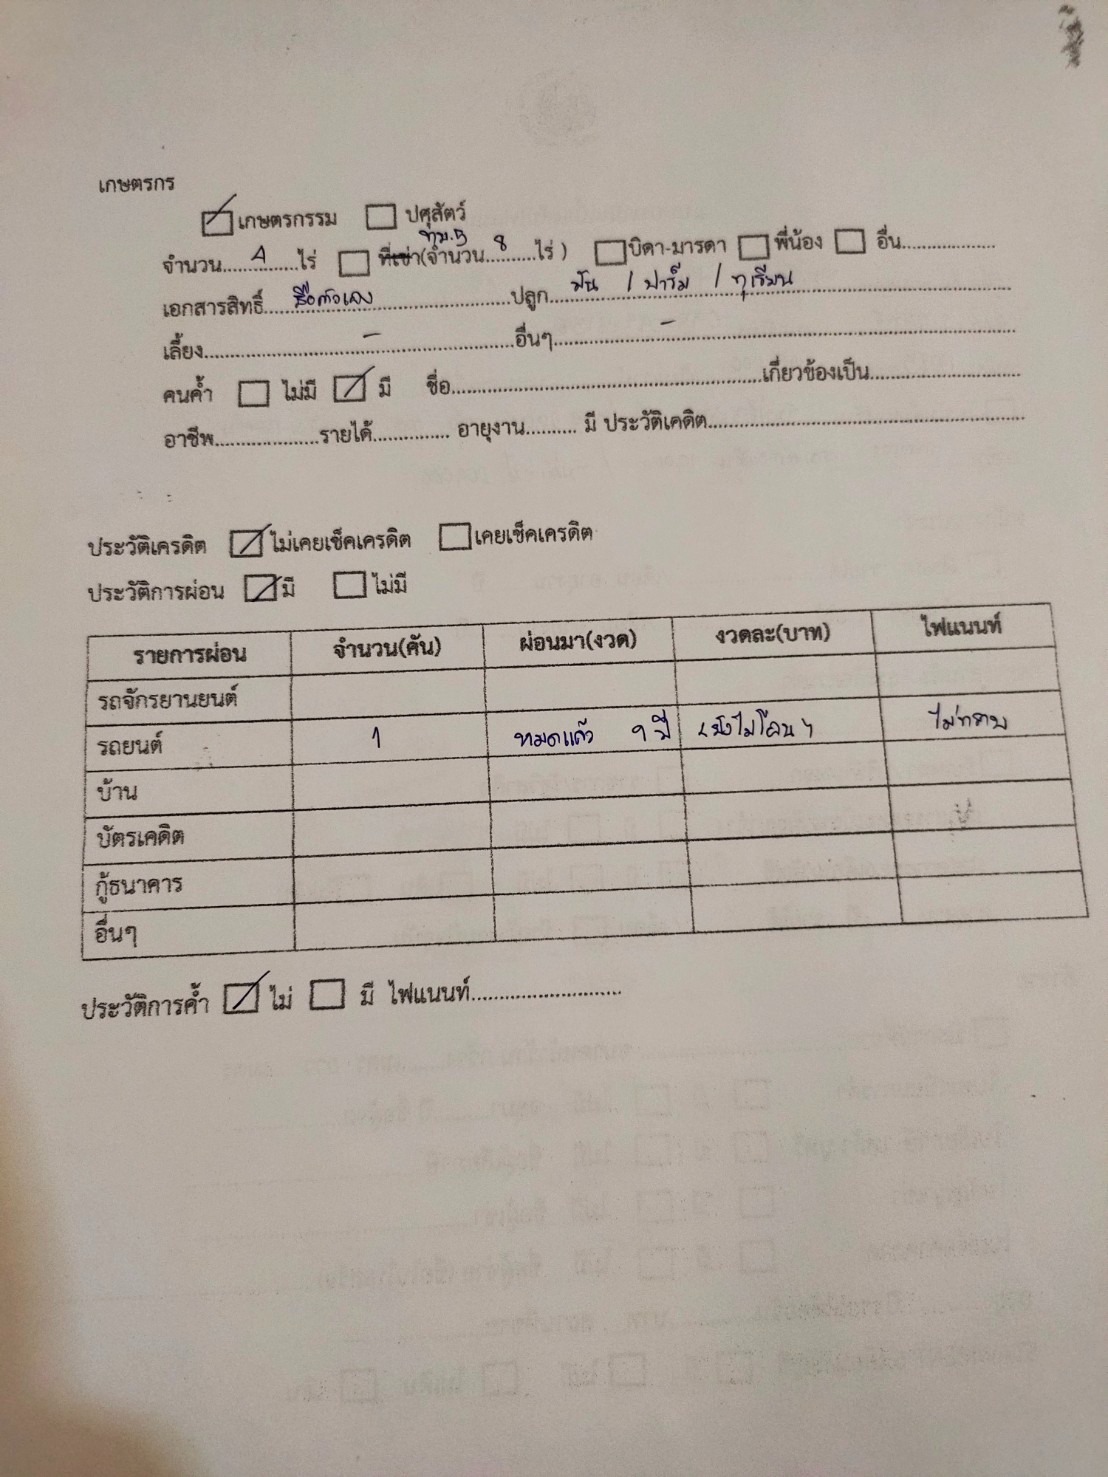 เกษตรกร
เกษตรกรรม ปศุสัตว์
จำนวน.........ไร่ ที่เช่า(จำนวน...8...ไร่ ) บิดา-มารดา พี่น้อง อื่น..........
เอกสารสิทธิ์...ชื่อตัวเอง...ปลูก...มัน / ปาร์ม / ทุเรียน...
เลี้ยง...-...อื่นๆ...-...
คนค้ำ ไม่มี มี ชื่อ...........เกี่ยวข้องเป็น...........
อาชีพ..........รายได้.......... อายุงาน.......... มี ประวัติเคดิต..........
ประวัติเครดิต ไม่เคยเช็คเครดิต เคยเช็คเครดิต
ประวัติการผ่อน มี ไม่มี
รายการผ่อน จำนวน(คัน) ผ่อนมา(งวด) งวดละ(บาท) ไฟแนนท์
รถจักรยานยนต์
รถยนต์ 1 หมดแล้ว 9 ปี (ยังไม่โอน) ไม่ทราบ
บ้าน
บัตรเคดิต
กู้ธนาคาร
อื่นๆ
ประวัติการค้ำ ไม่ มี ไฟแนนท์..........